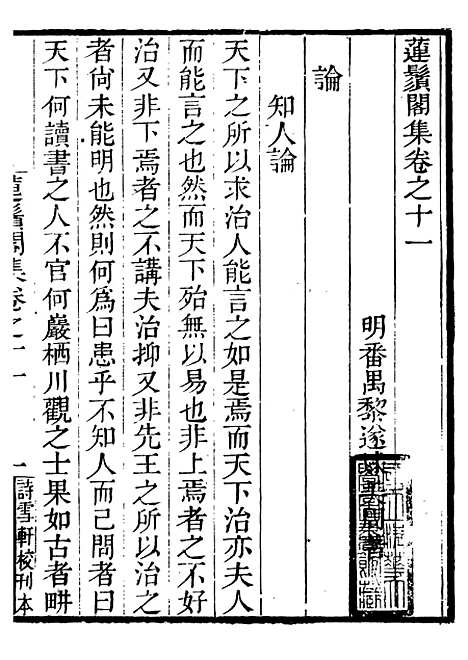 蓮鬚閣集卷之十一
明番禺黎遂
論
知人論
天下之所以求治人能言之如是焉而天下治亦夫人
而能言之也然而天下殆無以易也非上焉者之不好
治又非下焉者之不講夫治抑又非先王之所以治之
者尚未能明也然則何為曰患乎不知人而已問者曰
天下何讀書之人不官何巖栖川觀之士果如古者畊
蓮鬚閣集卷之十一
一
詩雪軒校刊本